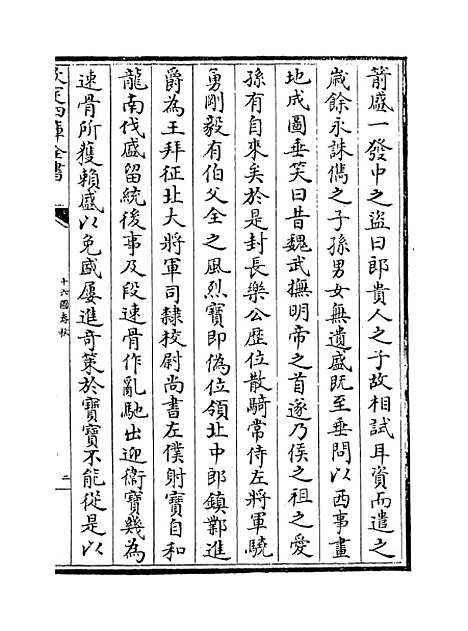 箭盛一發中之盜曰郎貴人之子故相試耳資而遣之
嵗餘永誅儁之子孫男女無遺盛既至垂問以西事畫
地成圖垂笑曰昔魏武撫明帝之首遂乃侯之祖之愛
孫有自來矣於是封長樂公歴位散騎常侍左將軍驍
勇剛毅有伯父全之風烈寶即偽位領北中郎鎮鄴進
爵為王拜征北大將軍司隸校尉尚書左僕射寶自和
龍南伐盛留統後事及段速骨作亂馳出迎衞寶幾為
速骨所獲賴盛以免盛屢進竒策於寶寶不能從是以
欽定四庫全書
十六國春秋
二